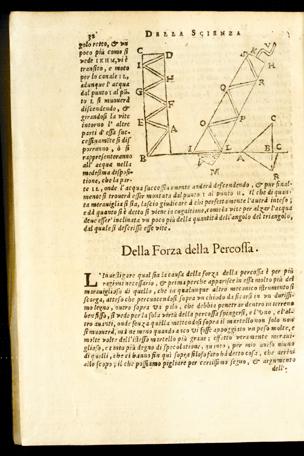 32 DELLA SCIENZA
golo retto, & un
poco più come si
vede IKHM, vi è
transito, e moto
per lo canale IL,
adunque l'acqua
dal punto I al pũ-
to L si muoverà
discendendo, &
girandosi la vite
intorno l'altre
parti d'essa suc-
cessivamẽte si dis-
porranno, ò si
rappresenteranno
all'acqua nella
medesima disposi-
tione, che la par-
te IL, onde l'acqua successivamente anderà discendendo, & pur final-
mente si troverà esser montata dal punto I al punto H. Il che di quan-
ta meraviglia si sia, lascio giudicare à chi perfettamente l'haverà inteso;
e da quanto si è detto si viene in cognitione, come la vite per alzar l'acqua
deve esser inclinata un poco più della quantità dell'angolo del triangolo,
dal quale si descrisse essa vite.
C D
I H
G
F E
A
B
V
K H
R
Q
P
O S
I L A B
M
C C
E
Della Forza della Percossa.
L'Investigare qual sia la causa della forza della percossa è per più
ragioni necessario, & prima perche apparisce in essa molto più del
meraviglioso di quello, che in qualunque altro mecanico istrumento si
scorga, atteso che percotendosi sopra un chiodo da ficcarsi in un durissi-
mo legno, overo sopra un palo, che debba penetrar dentro in terreno
ben fisso, si vede per la sola virtù della percossa spingersi, e l'uno, e l'al-
tro avanti, onde senza quella mettendosi sopra il martello non solo non
si muoverà, ma nè meno quando anco vi fusse appoggiato un peso molte, e
molte volte dell'istesso martello più grave; effetto veramente meravi-
glioso, e tanto più degno di specolatione, quanto, per mio aviso niuno
di quelli, che vi hanno fin quì sopra filosofato hà detto cosa, che arrivi
allo scopo; il che possiamo pigliare per certissimo segno, & argomento
dell'-